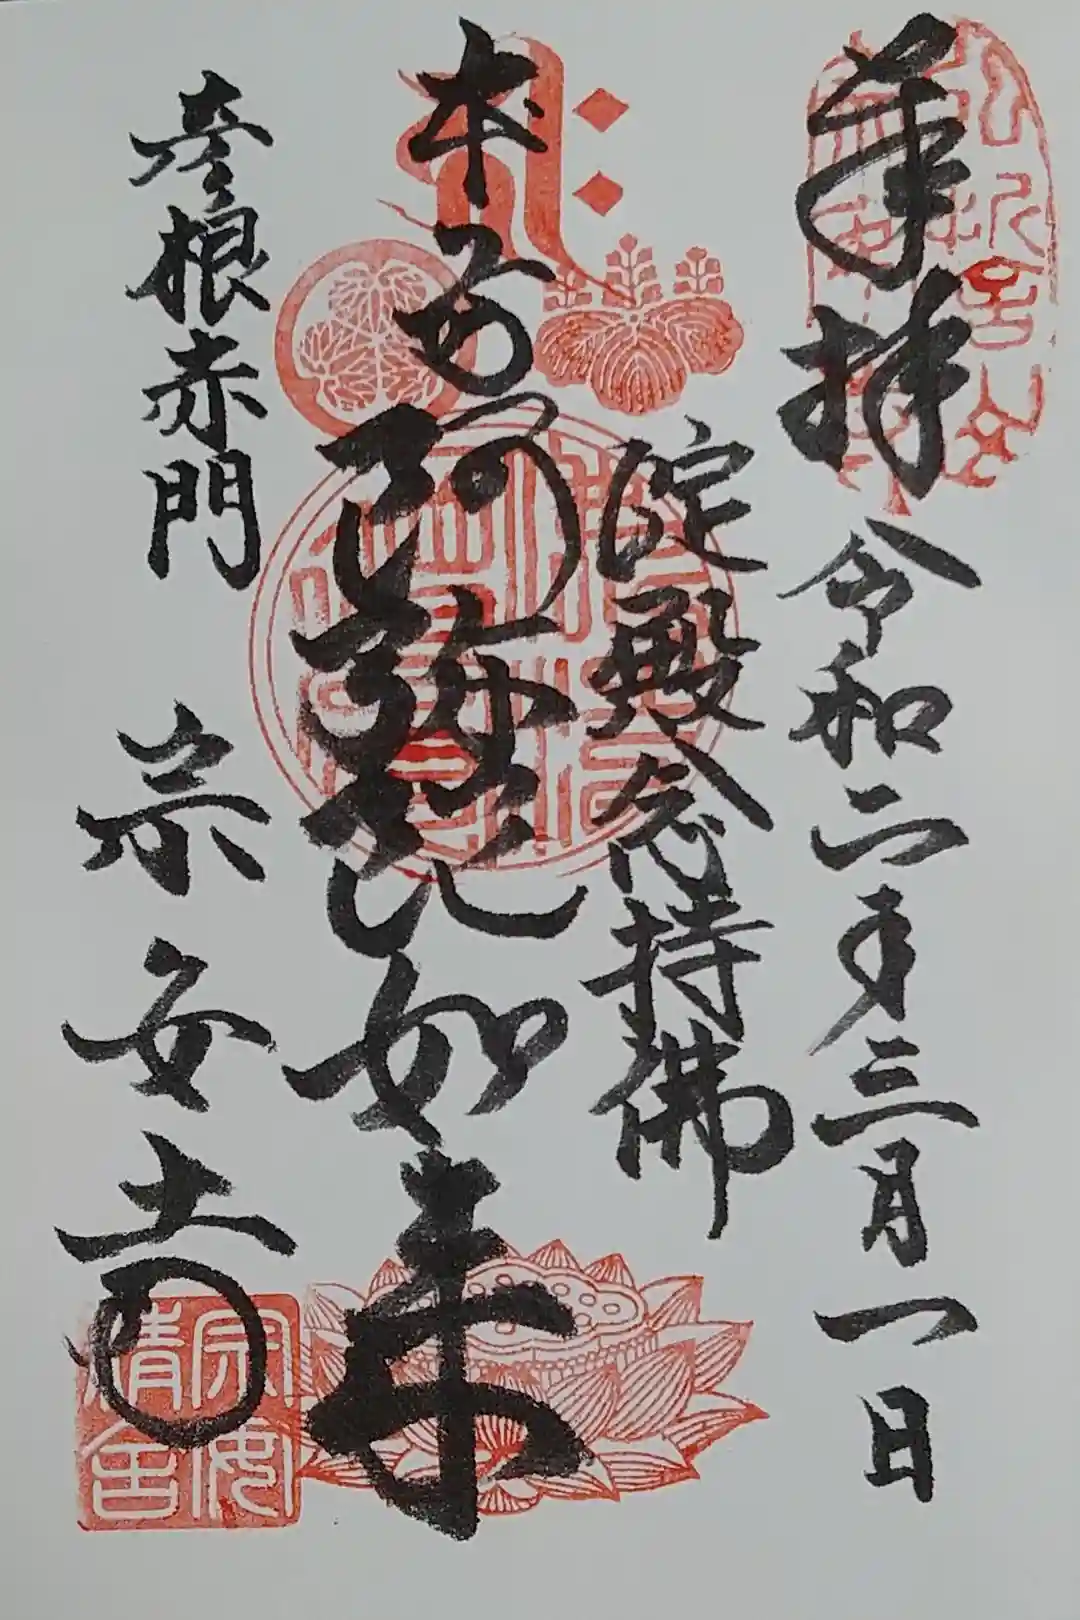 奉拝 令和二年三月一日
淀殿念持佛
本尊 阿弥陀如来
彦根赤門
宗安寺
宗安
精舎